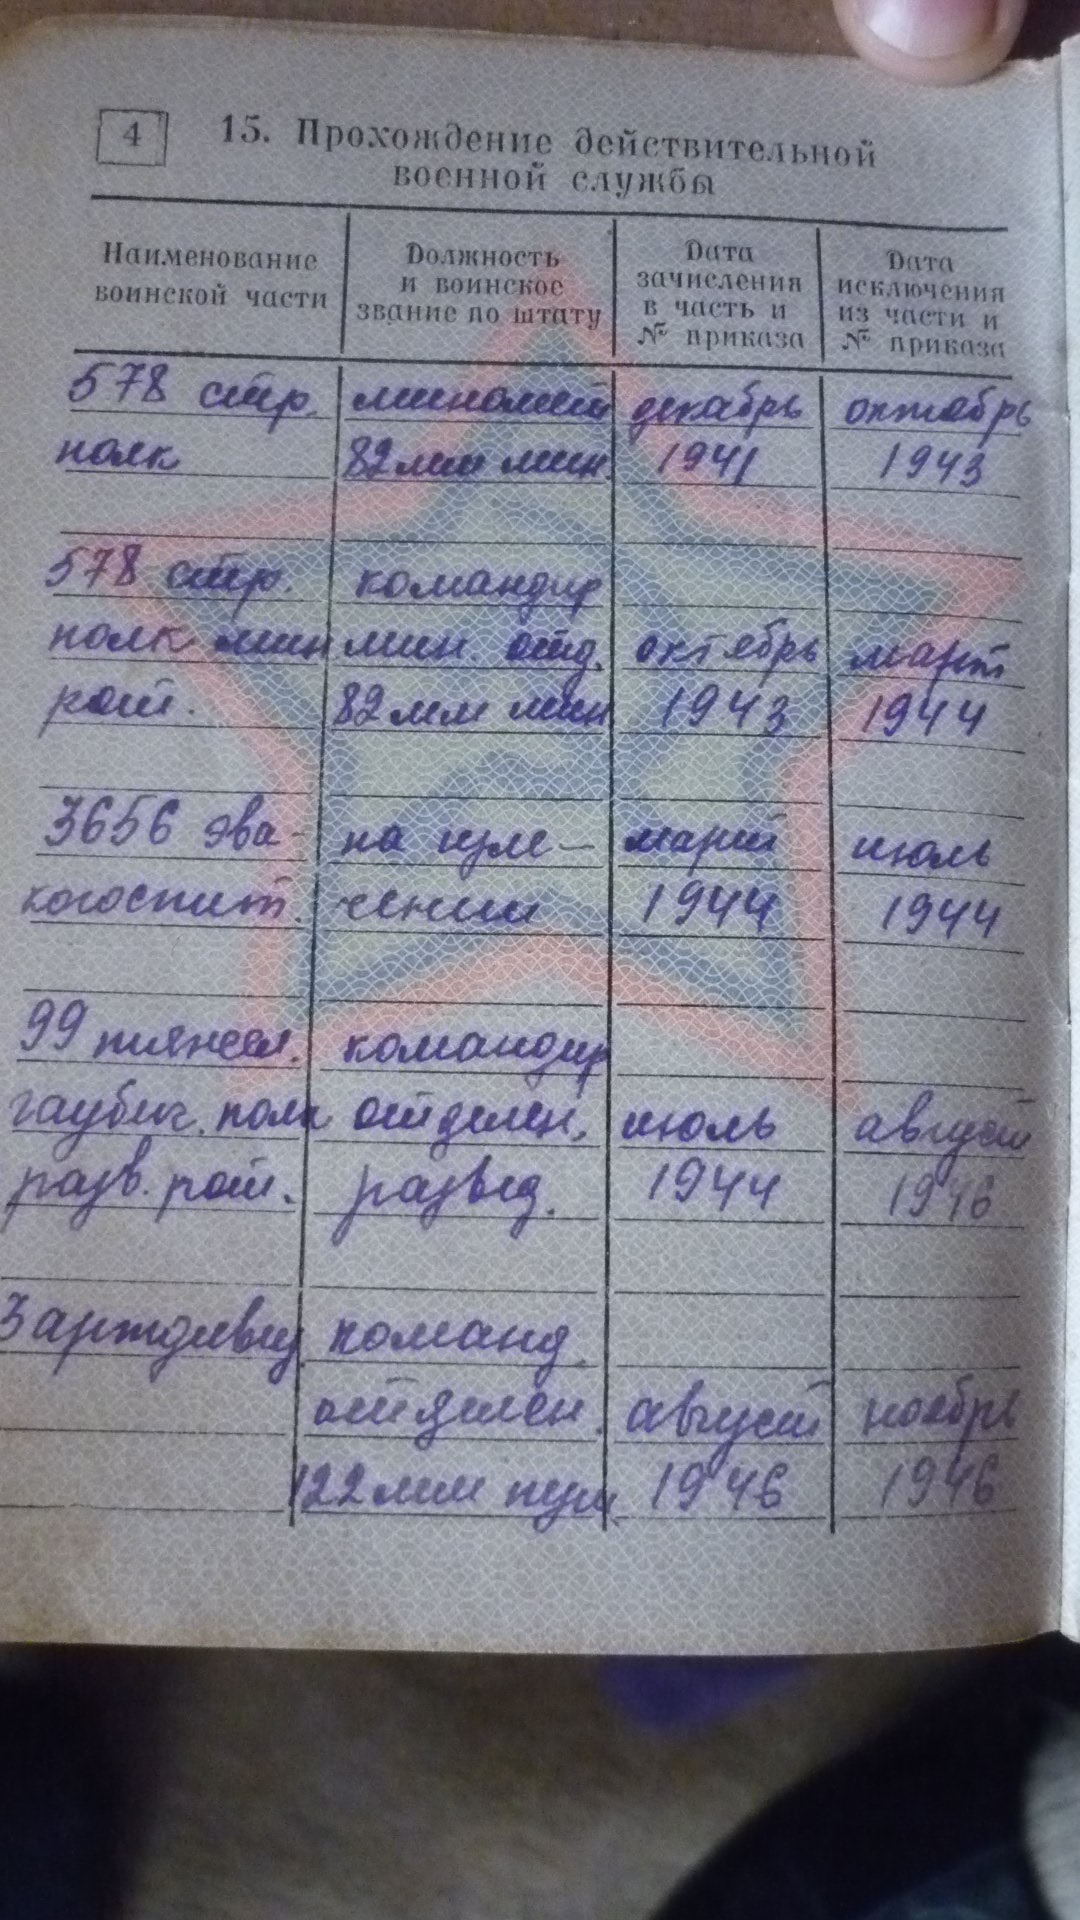 4
15. Прохождение действительной
военной службы
Наименование воинской части
Должность и воинское звание по штату
Дата зачисления в часть и № приказа
Дата исключения из части и № приказа
578 стр. миномет декабрь октябрь
полк 82 мм мин. 1941 1943
578 стр. командир
полк мин мин. отд. октябрь март
рот. 82 мм мин 1943 1944
3656 эва- на изле- март июль
когоспит. чении 1944 1944
99 тяжел. командир
гаубич. полк отделен. июль август
разв. рот. развед. 1944 1946
3 артдивиз. команд.
отделен. август ноябрь
122 мм пуш. 1946 1946